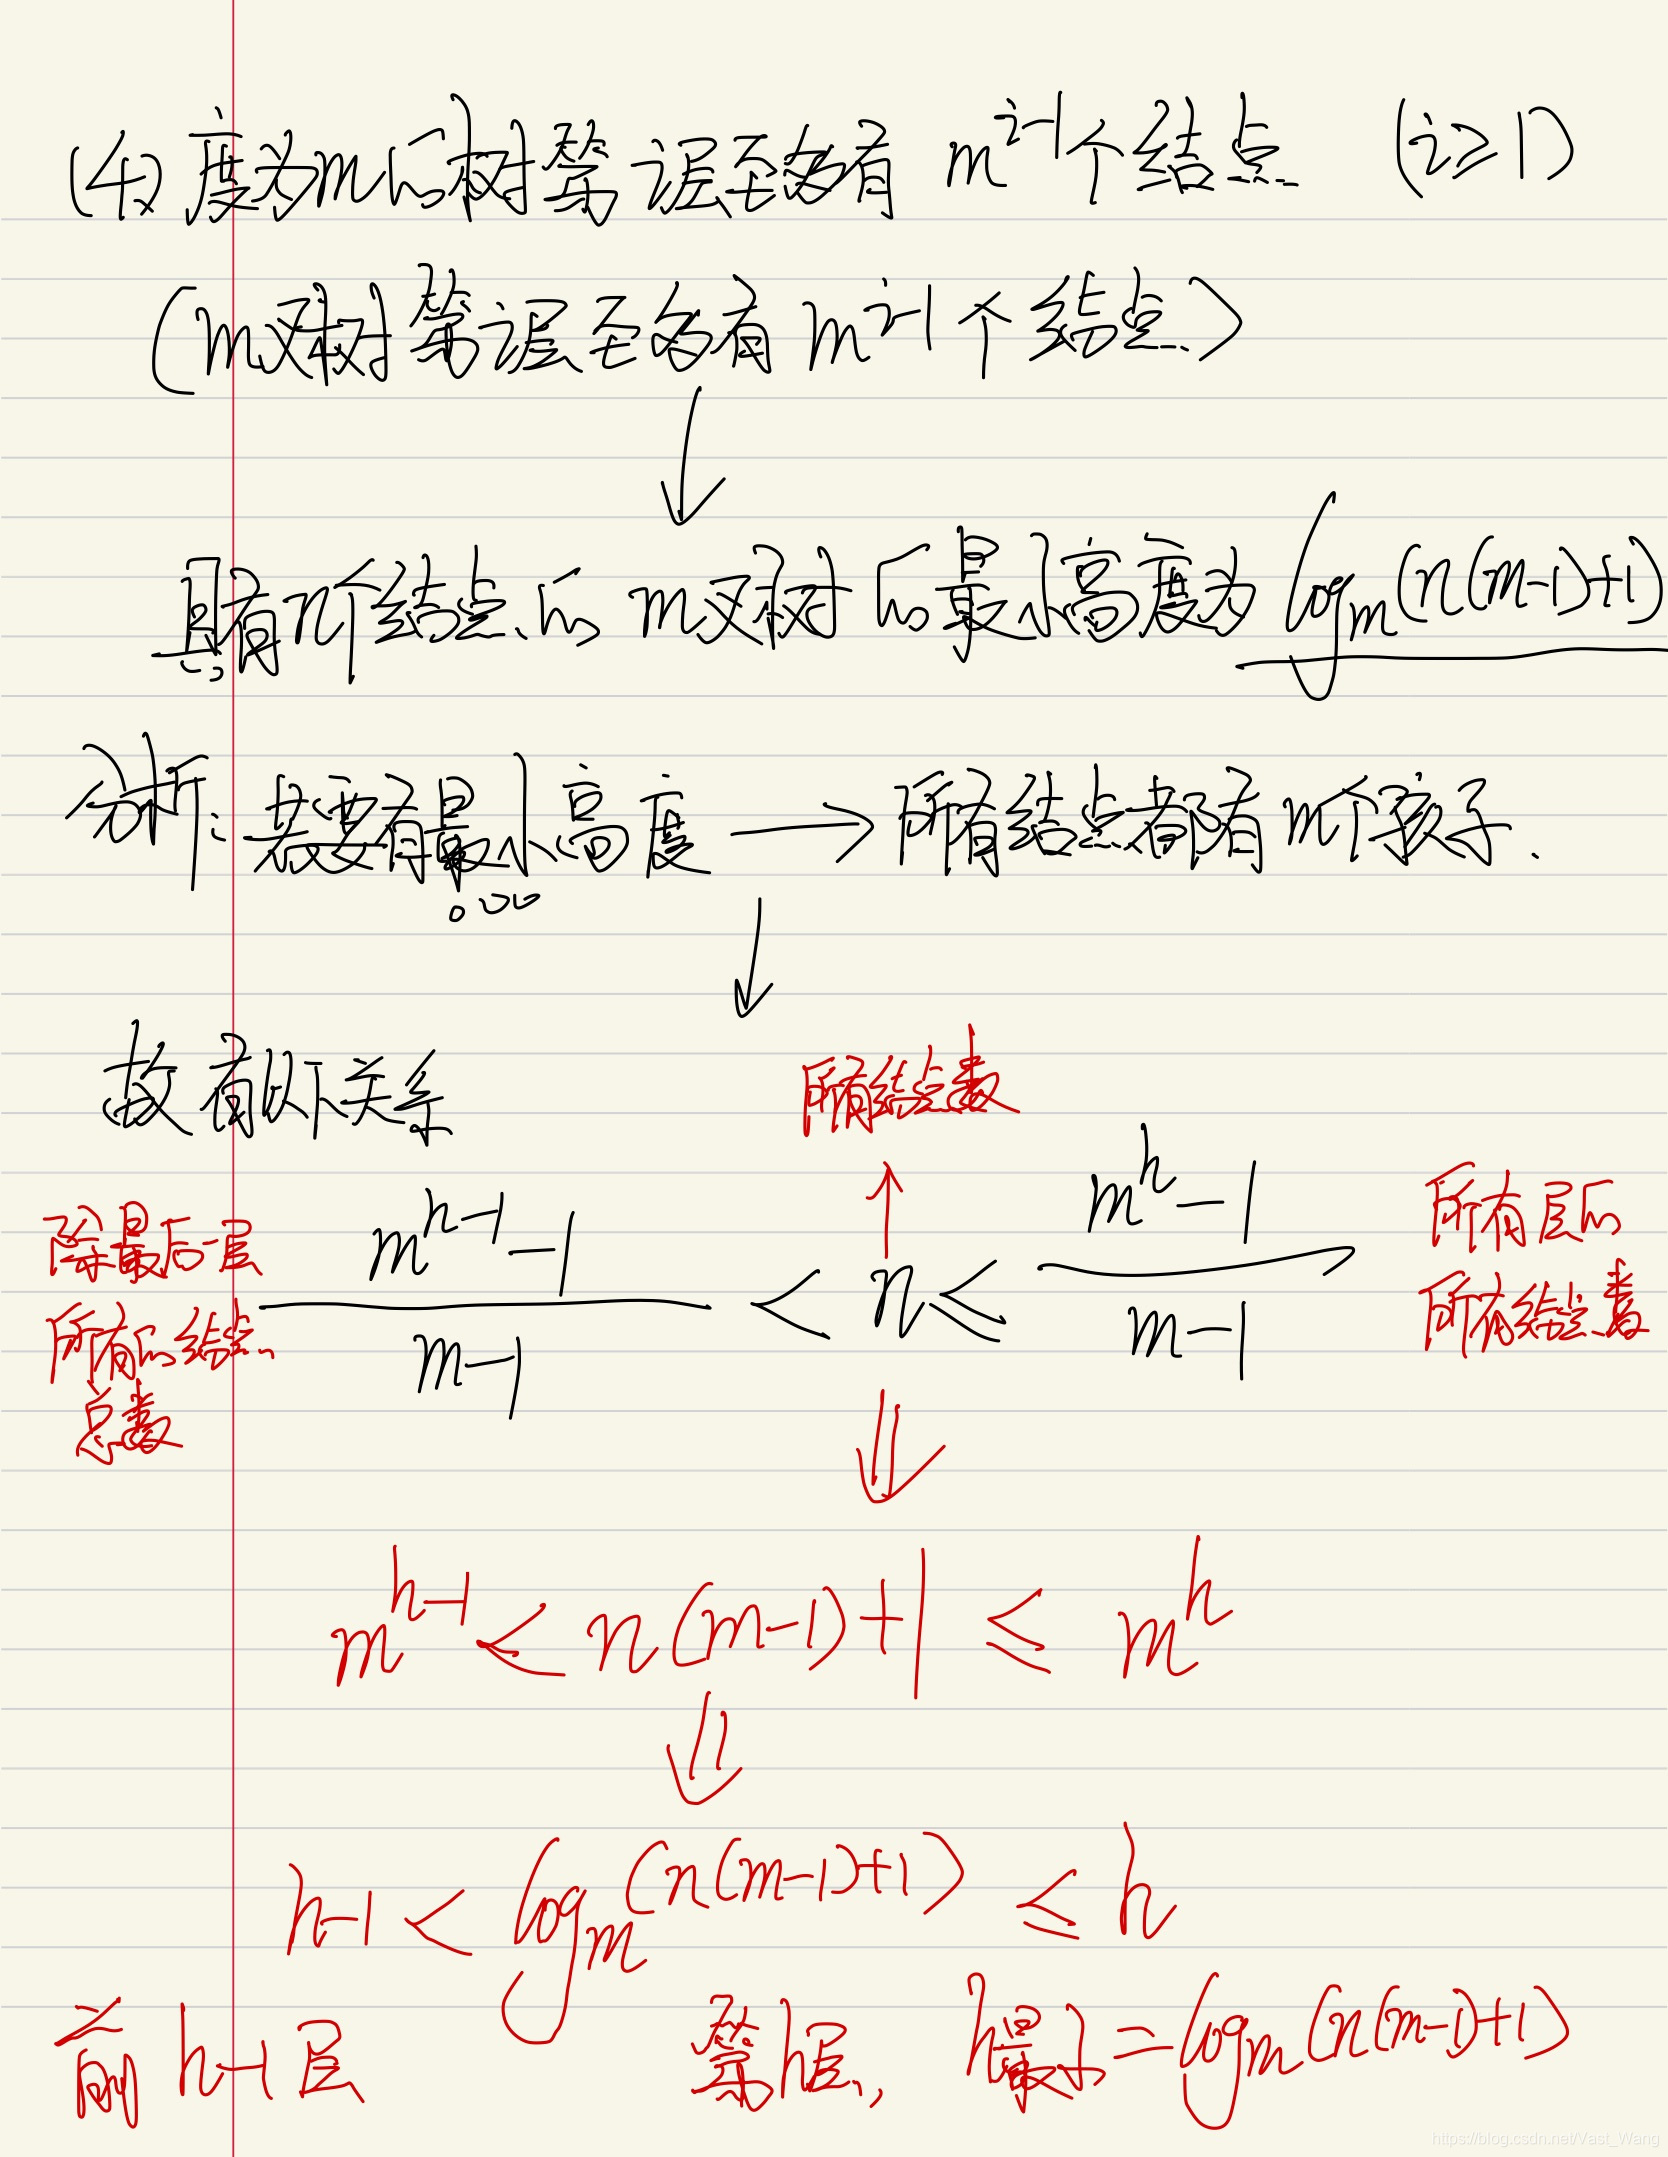 (4) 度为m的树第i层至多有 m^{i-1}个结点 (i≥1)
(m叉树第i层至多有m^{i-1}个结点)
↓
具有n个结点的m叉树的最小高度为 log_m(n(m-1)+1)
分析: 若要有最小高度 → 所有结点都有m个孩子.
↓
故有以下关系
所有结点数
↑
除最后一层
所有的结点
总数
\frac{m^{h-1}-1}{m-1} < n ≤ \frac{m^h-1}{m-1}
所有层的
所有结点数
⇓
m^{h-1} < n(m-1)+1 ≤ m^h
⇓
h-1 < log_m(n(m-1)+1) ≤ h
前h-1层 第h层, h最小=log_m(n(m-1)+1)
https://blog.csdn.net/Vast_Wang